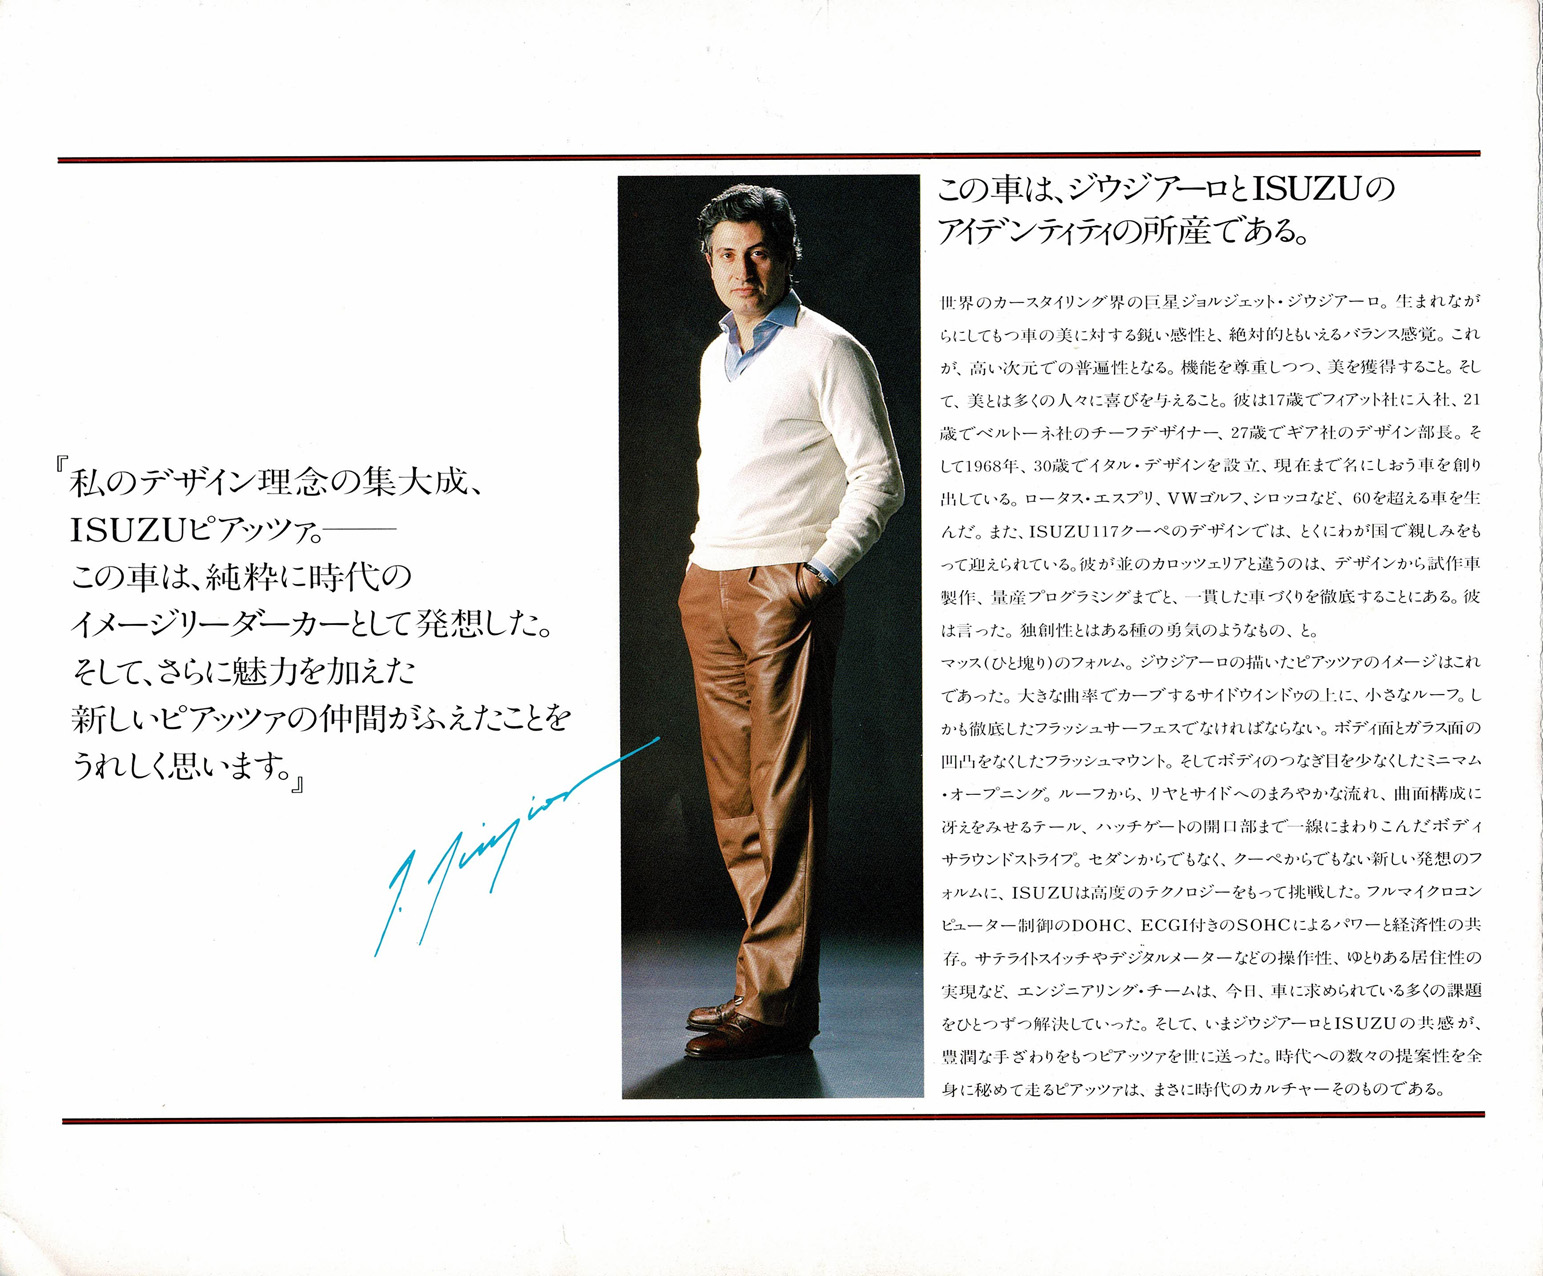 『私のデザイン理念の集大成、
ISUZUピアッツァ。——
この車は、純粋に時代の
イメージリーダーカーとして発想した。
そして、さらに魅力を加えた
新しいピアッツァの仲間がふえたことを
うれしく思います。』
この車は、ジウジアーロとISUZUの
アイデンティティの所産である。
世界のカースタイリング界の巨星ジョルジェット・ジウジアーロ。生まれなが
らにしてもつ車の美に対する鋭い感性と、絶対的ともいえるバランス感覚。これ
が、高い次元での普遍性となる。機能を尊重しつつ、美を獲得すること。そし
て、美とは多くの人々に喜びを与えること。彼は17歳でフィアット社に入社、21
歳でベルトーネ社のチーフデザイナー、27歳でギア社のデザイン部長。そ
して1968年、30歳でイタル・デザインを設立、現在まで名にしおう車を創り
出している。ロータス・エスプリ、VWゴルフ、シロッコなど、60を超える車を生
んだ。また、ISUZU117クーペのデザインでは、とくにわが国で親しみをも
って迎えられている。彼が並のカロッツェリアと違うのは、デザインから試作車
製作、量産プログラミングまでと、一貫した車づくりを徹底することにある。彼
は言った。独創性とはある種の勇気のようなもの、と。
マッス(ひと塊り)のフォルム。ジウジアーロの描いたピアッツァのイメージはこれ
であった。大きな曲率でカーブするサイドウインドゥの上に、小さなルーフ。し
かも徹底したフラッシュサーフェスでなければならない。ボディ面とガラス面の
凹凸をなくしたフラッシュマウント。そしてボディのつなぎ目を少なくしたミニマム
・オープニング。ルーフから、リヤとサイドへのまろやかな流れ、曲面構成に
冴えをみせるテール、ハッチゲートの開口部まで一線にまわりこんだボディ
サラウンドストライプ。セダンからでもなく、クーペからでもない新しい発想のフ
ォルムに、ISUZUは高度のテクノロジーをもって挑戦した。フルマイクロコン
ピューター制御のDOHC、ECGI付きのSOHCによるパワーと経済性の共
存。サテライトスイッチやデジタルメーターなどの操作性、ゆとりある居住性の
実現など、エンジニアリング・チームは、今日、車に求められている多くの課題
をひとつずつ解決していった。そして、いまジウジアーロとISUZUの共感が、
豊潤な手ざわりをもつピアッツァを世に送った。時代への数々の提案性を全
身に秘めて走るピアッツァは、まさに時代のカルチャーそのものである。